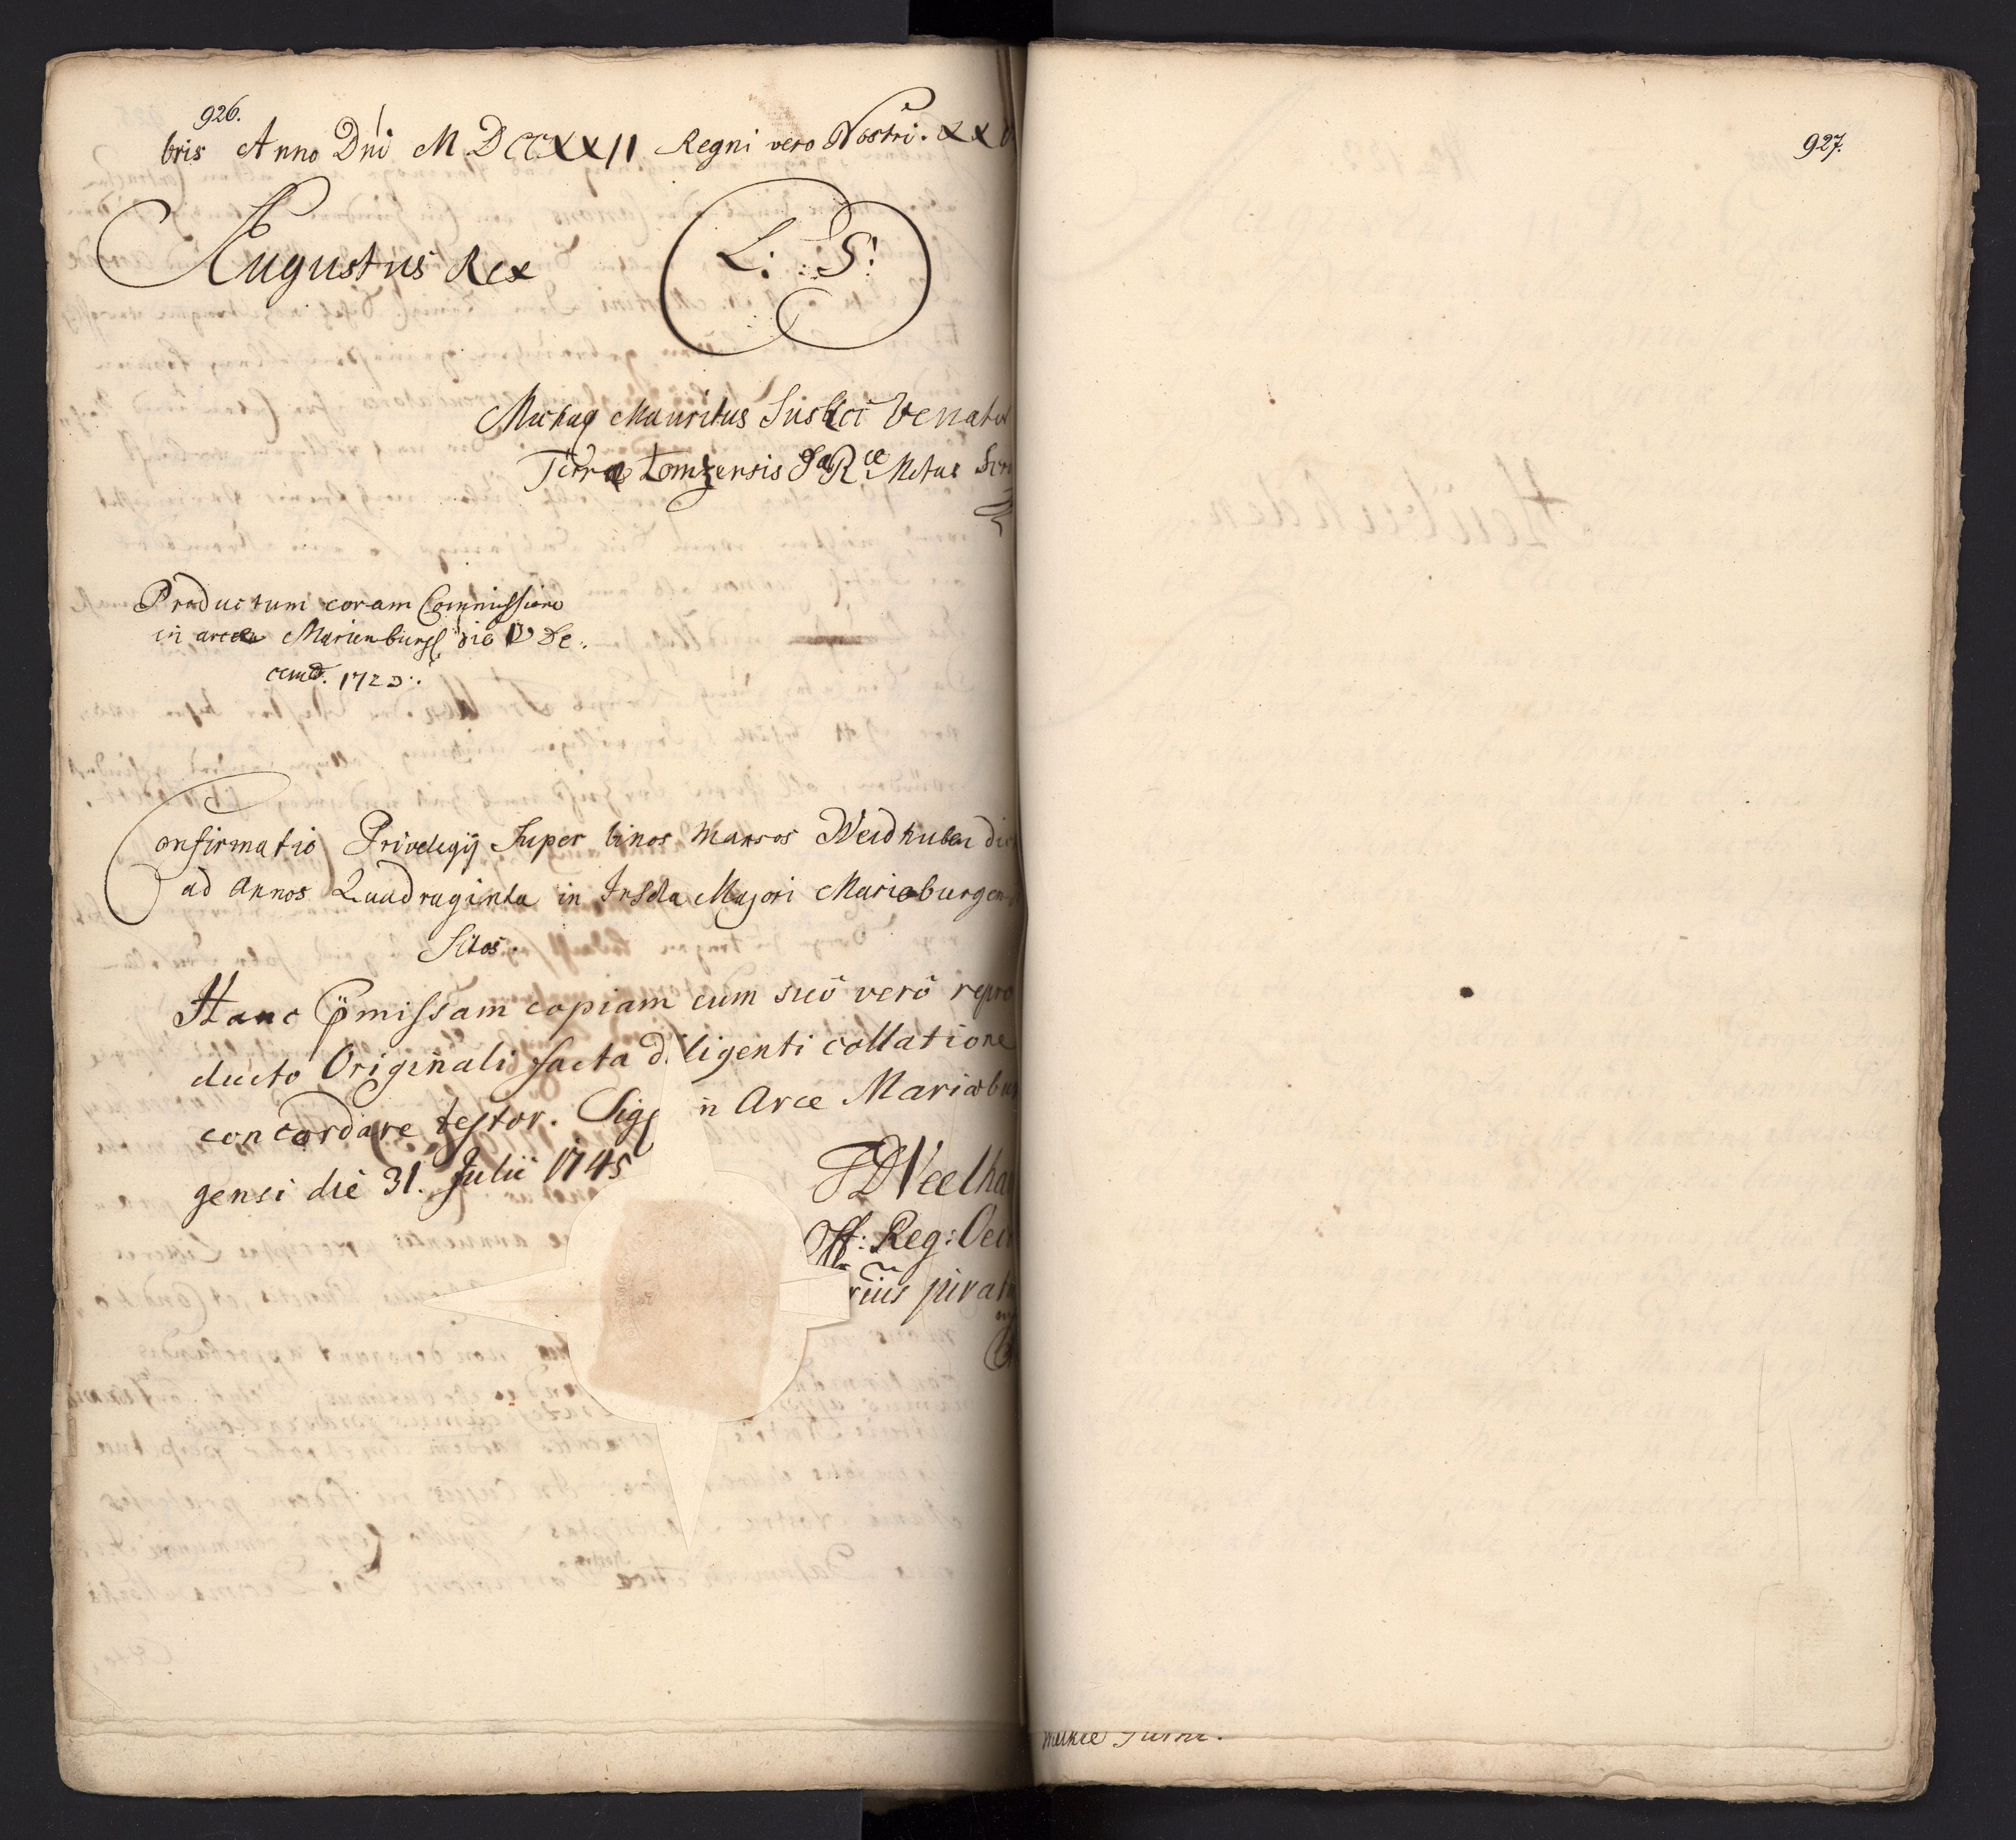 926.
bris Anno Dni MDCCXXII Regni vero Nostri. XXV
Augustus Rex
L: S:
Mauritus Suski Venator
Terræ Łomzensis S R Mttis Secr
Productum coram Commissione
in arce Marienburg die De:
cemb. 1723.
Confirmatio Privilegij Super binos Mansos Weidhuben dic
ad Annos Quadraginta in Insula Majori Marioburgen
Sitos.
Hanc p̄missam copiam cum suo vero repro
ducto Originali facta diligenti collatione
concordare testor. Sig in Arce Mariæbur
gensi die 31. Julii 1745
Off: Reg: Oec
rius jurat
927.
Turni.